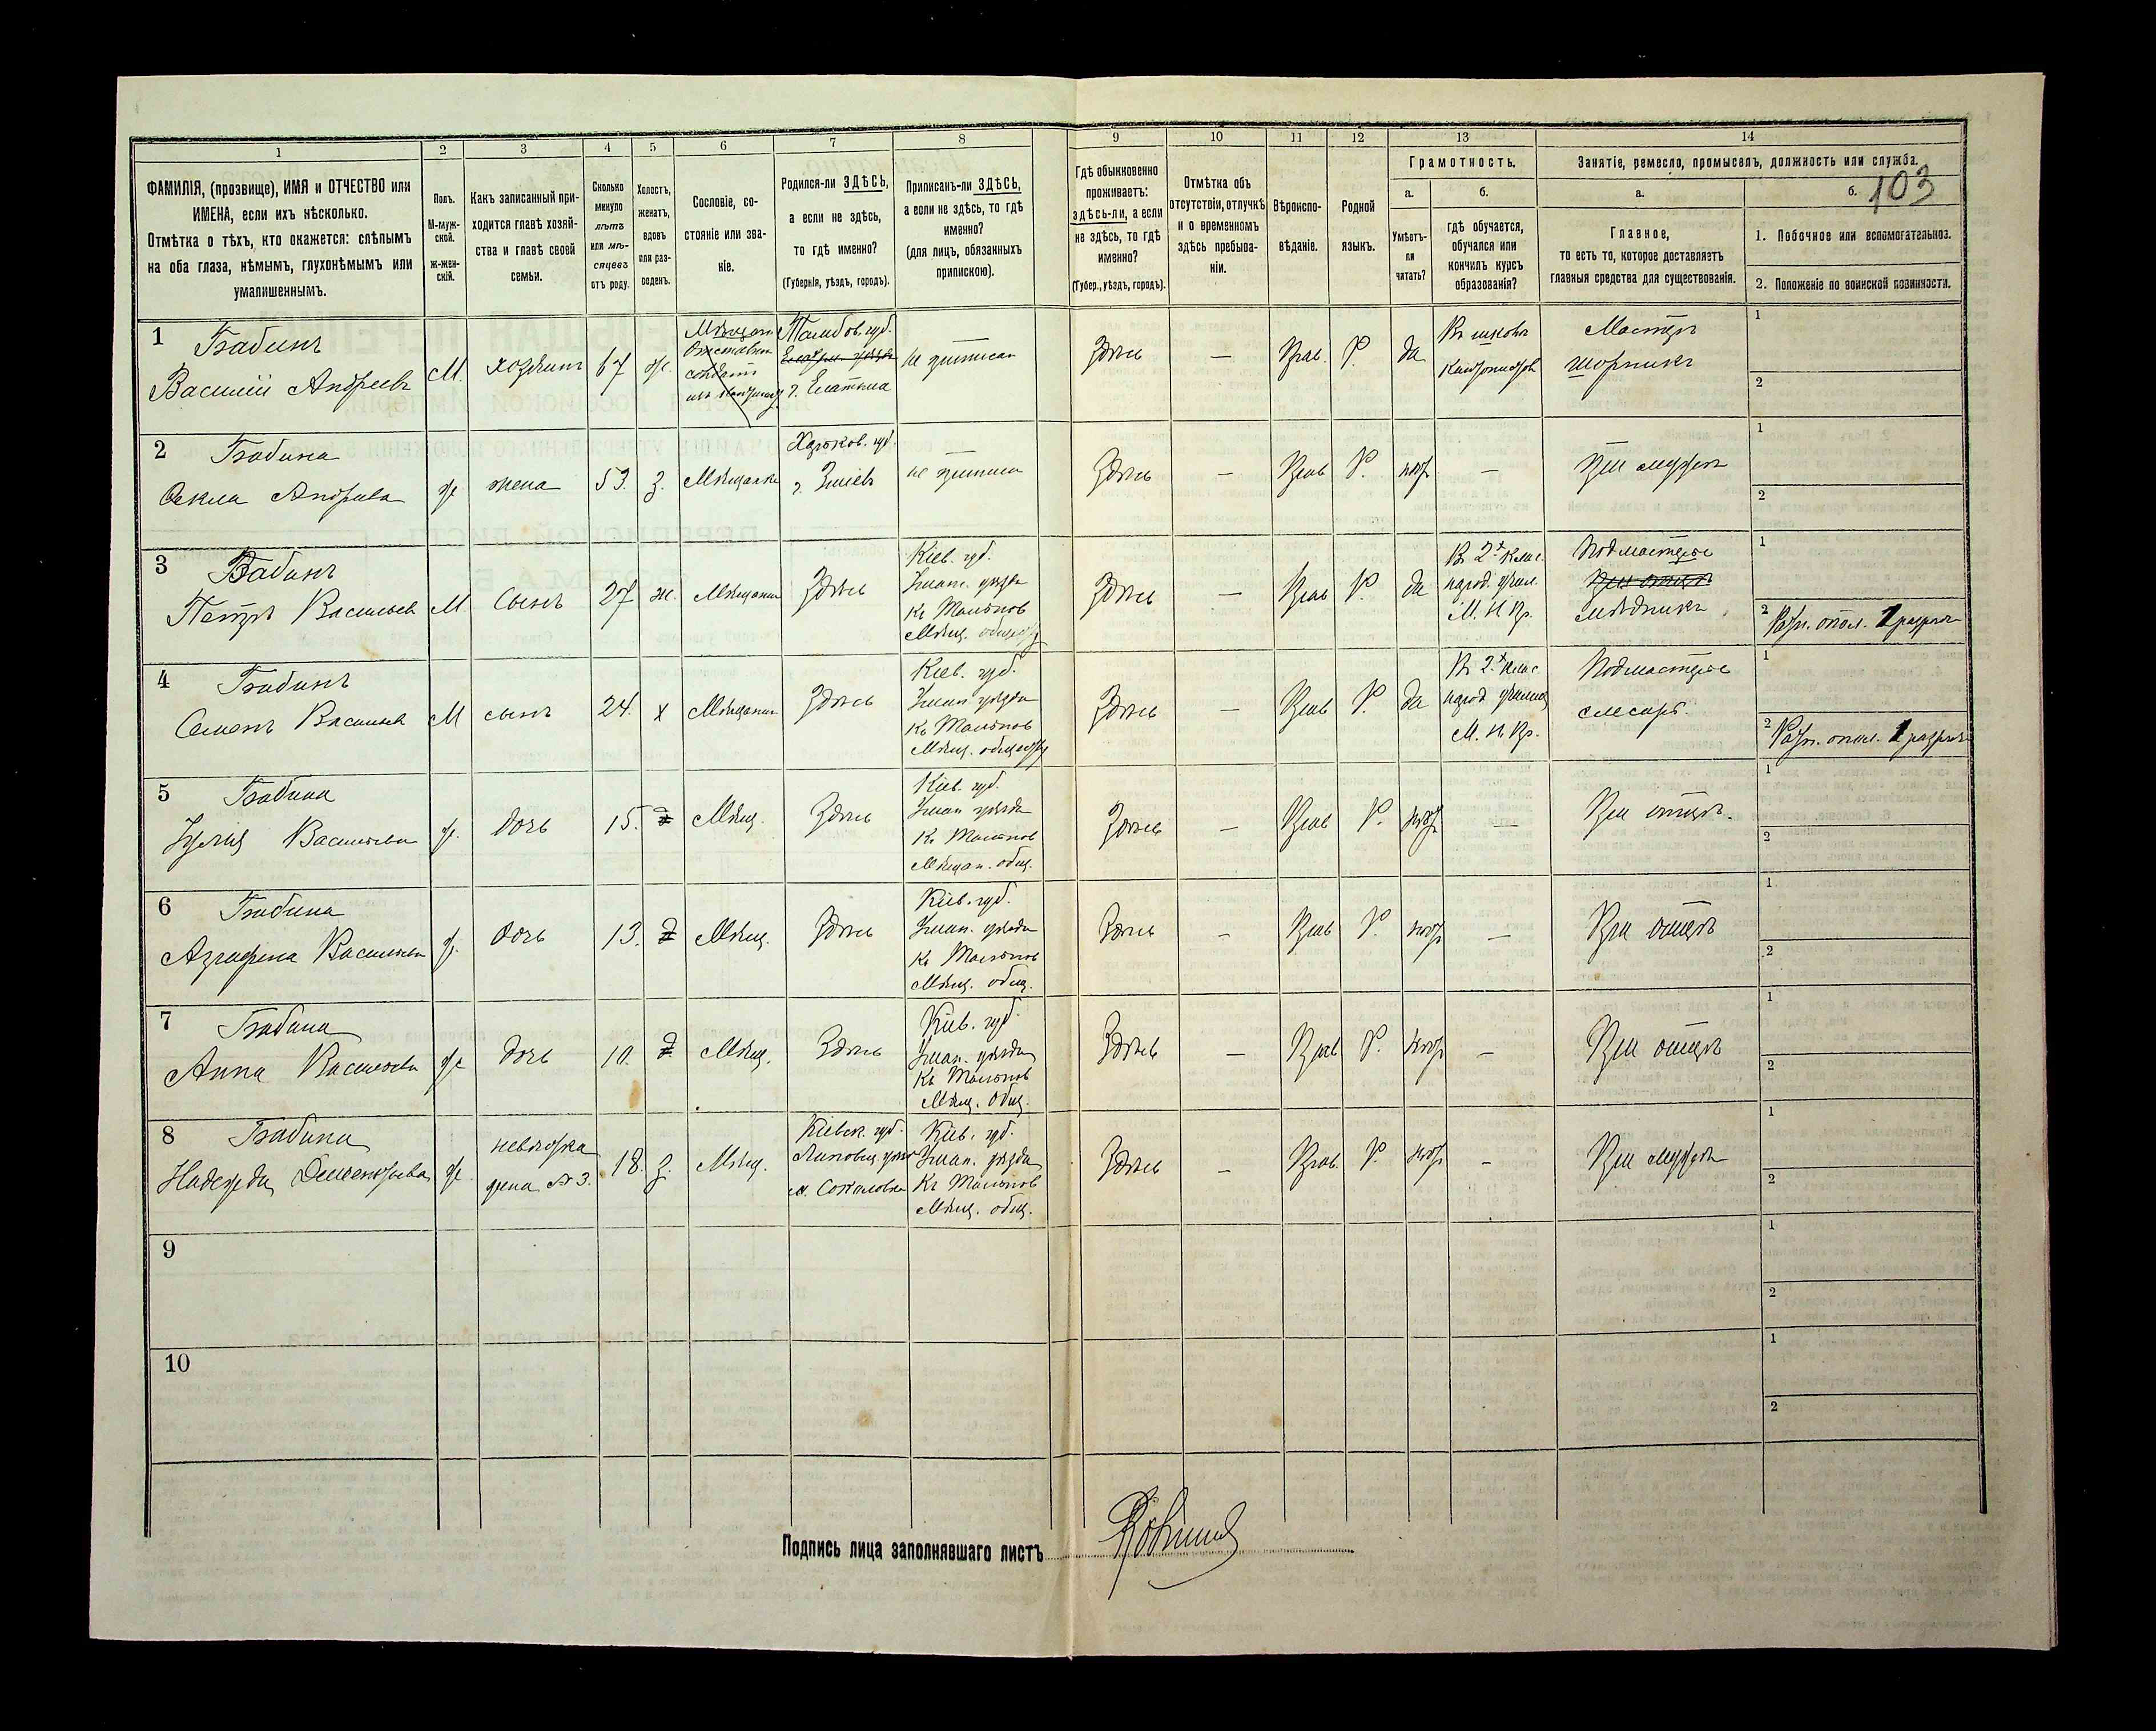 103
1
2
3
4
5
6
7
8
9
10
11
12
13
14
ФАМИЛІЯ, (прозвище), ИМЯ и ОТЧЕСТВО или
ИМЕНА, если ихъ нѣсколько.
Отмѣтка о тѣхъ, кто окажется: слѣпымъ
на оба глаза, нѣмымъ, глухонѣмымъ или
умалишеннымъ.
Полъ.
М-муж-
ской.
ж-жен-
скій.
Какъ записанный при-
ходится главѣ хозяй-
ства и главѣ своей
семьи.
Сколько
минуло
лѣтъ
или мѣ-
сяцевъ
отъ роду.
Холостъ,
женатъ,
вдовъ
или раз-
веденъ.
Сословіе, со-
стояніе или зва-
ніе.
Родился-ли ЗДѢСЬ,
а если не здѣсь,
то гдѣ именно?
(Губернія, уѣздъ, городъ).
Приписанъ-ли ЗДѢСЬ,
а если не здѣсь, то гдѣ
именно?
(для лицъ, обязанныхъ
припискою).
Гдѣ обыкновенно
проживаетъ:
здѣсь-ли, а если
не здѣсь, то гдѣ
именно?
(Губер., уѣздъ, городъ).
Отмѣтка объ
отсутствіи, отлучкѣ
и о временномъ
здѣсь пребыва-
ніи.
Вѣроиспо-
вѣданіе.
Родной
языкъ.
Грамотность.
а.
б.
Умѣетъ-
ли
читать?
гдѣ обучается,
обучался или
кончилъ курсъ
образованія?
Занятіе, ремесло, промыселъ, должность или служба.
а.
б.
Главное,
то есть то, которое доставляетъ
главныя средства для существованія.
1. Побочное или вспомогательное.
2. Положеніе по воинской повинности.
1
Бабинъ
Василій Андреевъ
М.
хозяинъ
67
ж.
Отставн.
Тамбов. губ.
г. Елатьма
не приписан
Здѣсь
—
Прав.
Р.
да
Въ школѣ
Мастеръ
шорникъ
1
2
2
Бабина
Ѳекла Андреева
ж
жена
53.
з.
Мѣщанка
Харьков. губ.
г. Зміевъ
не приписан
Здѣсь
—
Прав
Р.
—
При мужѣ
1
2
3
Бабинъ
Петръ Васильев
М
сынъ
27
ж.
Мѣщанин
Здѣсь
Кіев. губ.
Уман. уѣзда
къ Тальнов
Мѣщ. обществу
Здѣсь
—
Прав
Р.
да
Въ 2х клас.
народ. учил.
М. Н. Пр.
Подмастерье
при отцѣ
мѣдникъ
1
2 Ратн. опол. 1 разряда
4
Бабинъ
Семенъ Васильев
М
сынъ
24.
х
Мѣщанин
Здѣсь
Кіев. губ.
Уман уѣзда
къ Тальнов
Мѣщ. обществу
Здѣсь
—
Прав
Р.
да
Въ 2х клас.
народ училищ
М. Н. Пр.
Подмастерье
слесарь.
1
2 Ратн. опол. 1 разряда
5
Бабина
Юлія Васильева
ж.
дочь
15.
Мѣщ.
Здѣсь
Кіев. губ.
Уман уѣзда
къ Тальнов
Мѣщан. общ.
Здѣсь
—
Прав
Р.
—
При отцѣ.
1
2
6
Бабина
Аграфена Васильева
ж.
дочь
13.
Мѣщ.
Здѣсь
Кіев. губ.
Уман. уѣзда
къ Тальнов
Мѣщ. общ.
Здѣсь
—
Прав
Р.
—
При отцѣ
1
2
7
Бабина
Анна Васильева
ж
дочь
10.
Мѣщ.
Здѣсь
Кіев. губ.
Уман. уѣзда
къ Тальнов
Мѣщ. общ.
Здѣсь
—
Прав
Р.
—
При отцѣ
1
2
8
Бабина
Надежда
ж
невѣстка
жена № 3.
18.
з.
Мѣщ.
Кіевск. губ.
Липовец. уѣзд
м. Соколовка
Кіев. губ.
Уман. уѣзда
къ Тальнов
Мѣщ. общ.
Здѣсь
—
Прав.
Р.
—
При мужѣ
1
2
9
1
2
10
1
2
Подпись лица заполнявшаго листъ